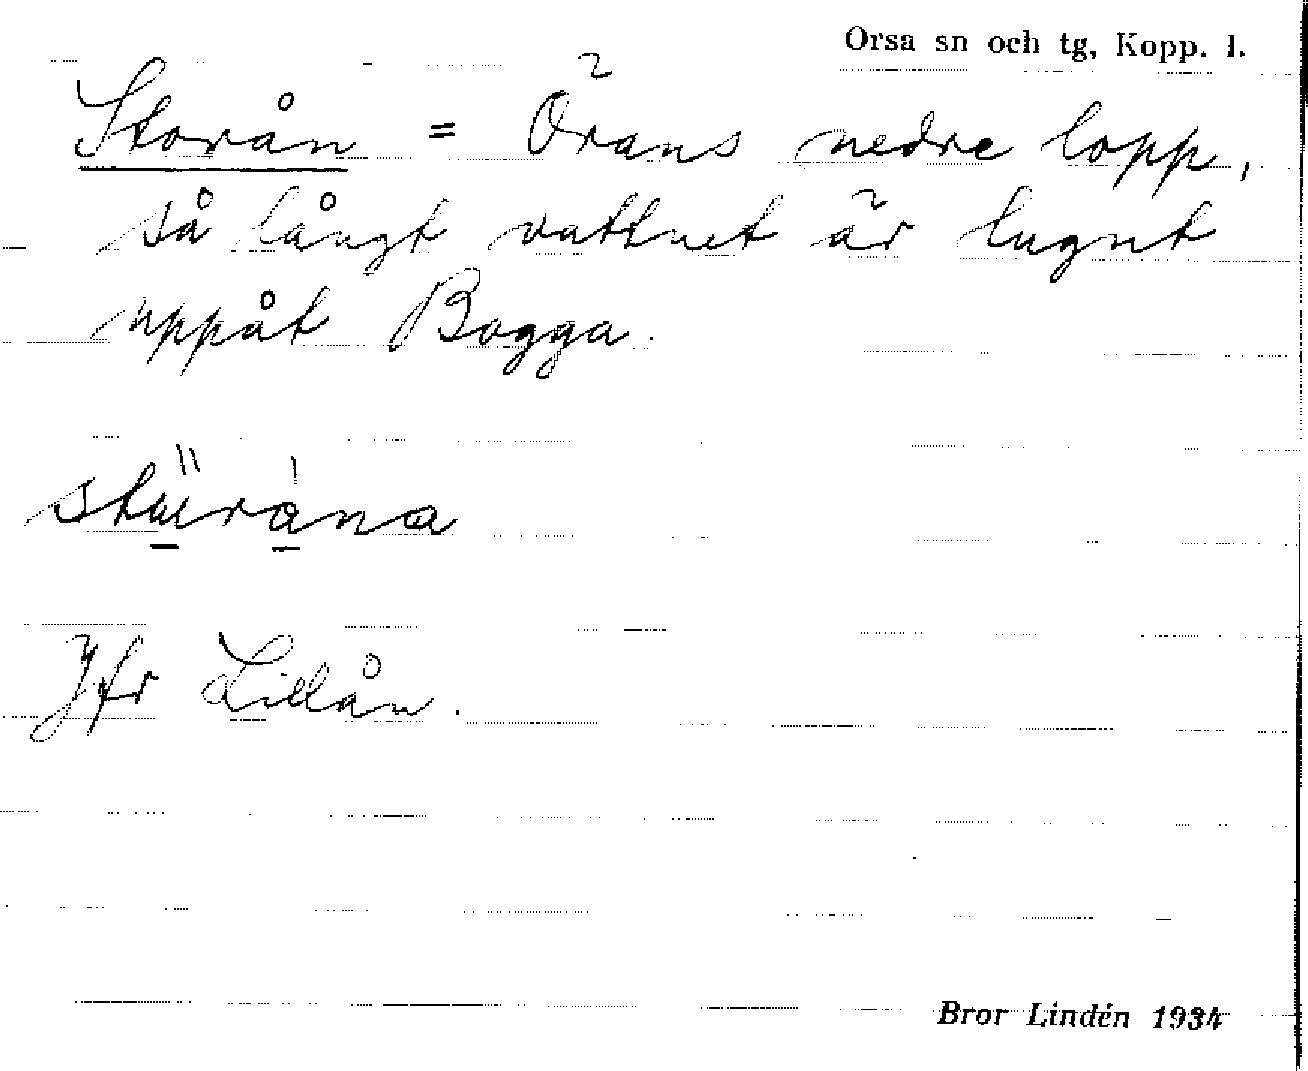 Orsa sn och tg, Kopp. l.
Storån = Örans nedre lopp,
så långt vattnet är lugnt
uppåt Bogga.
Jfr Lillån.
Bror Lindén 1934